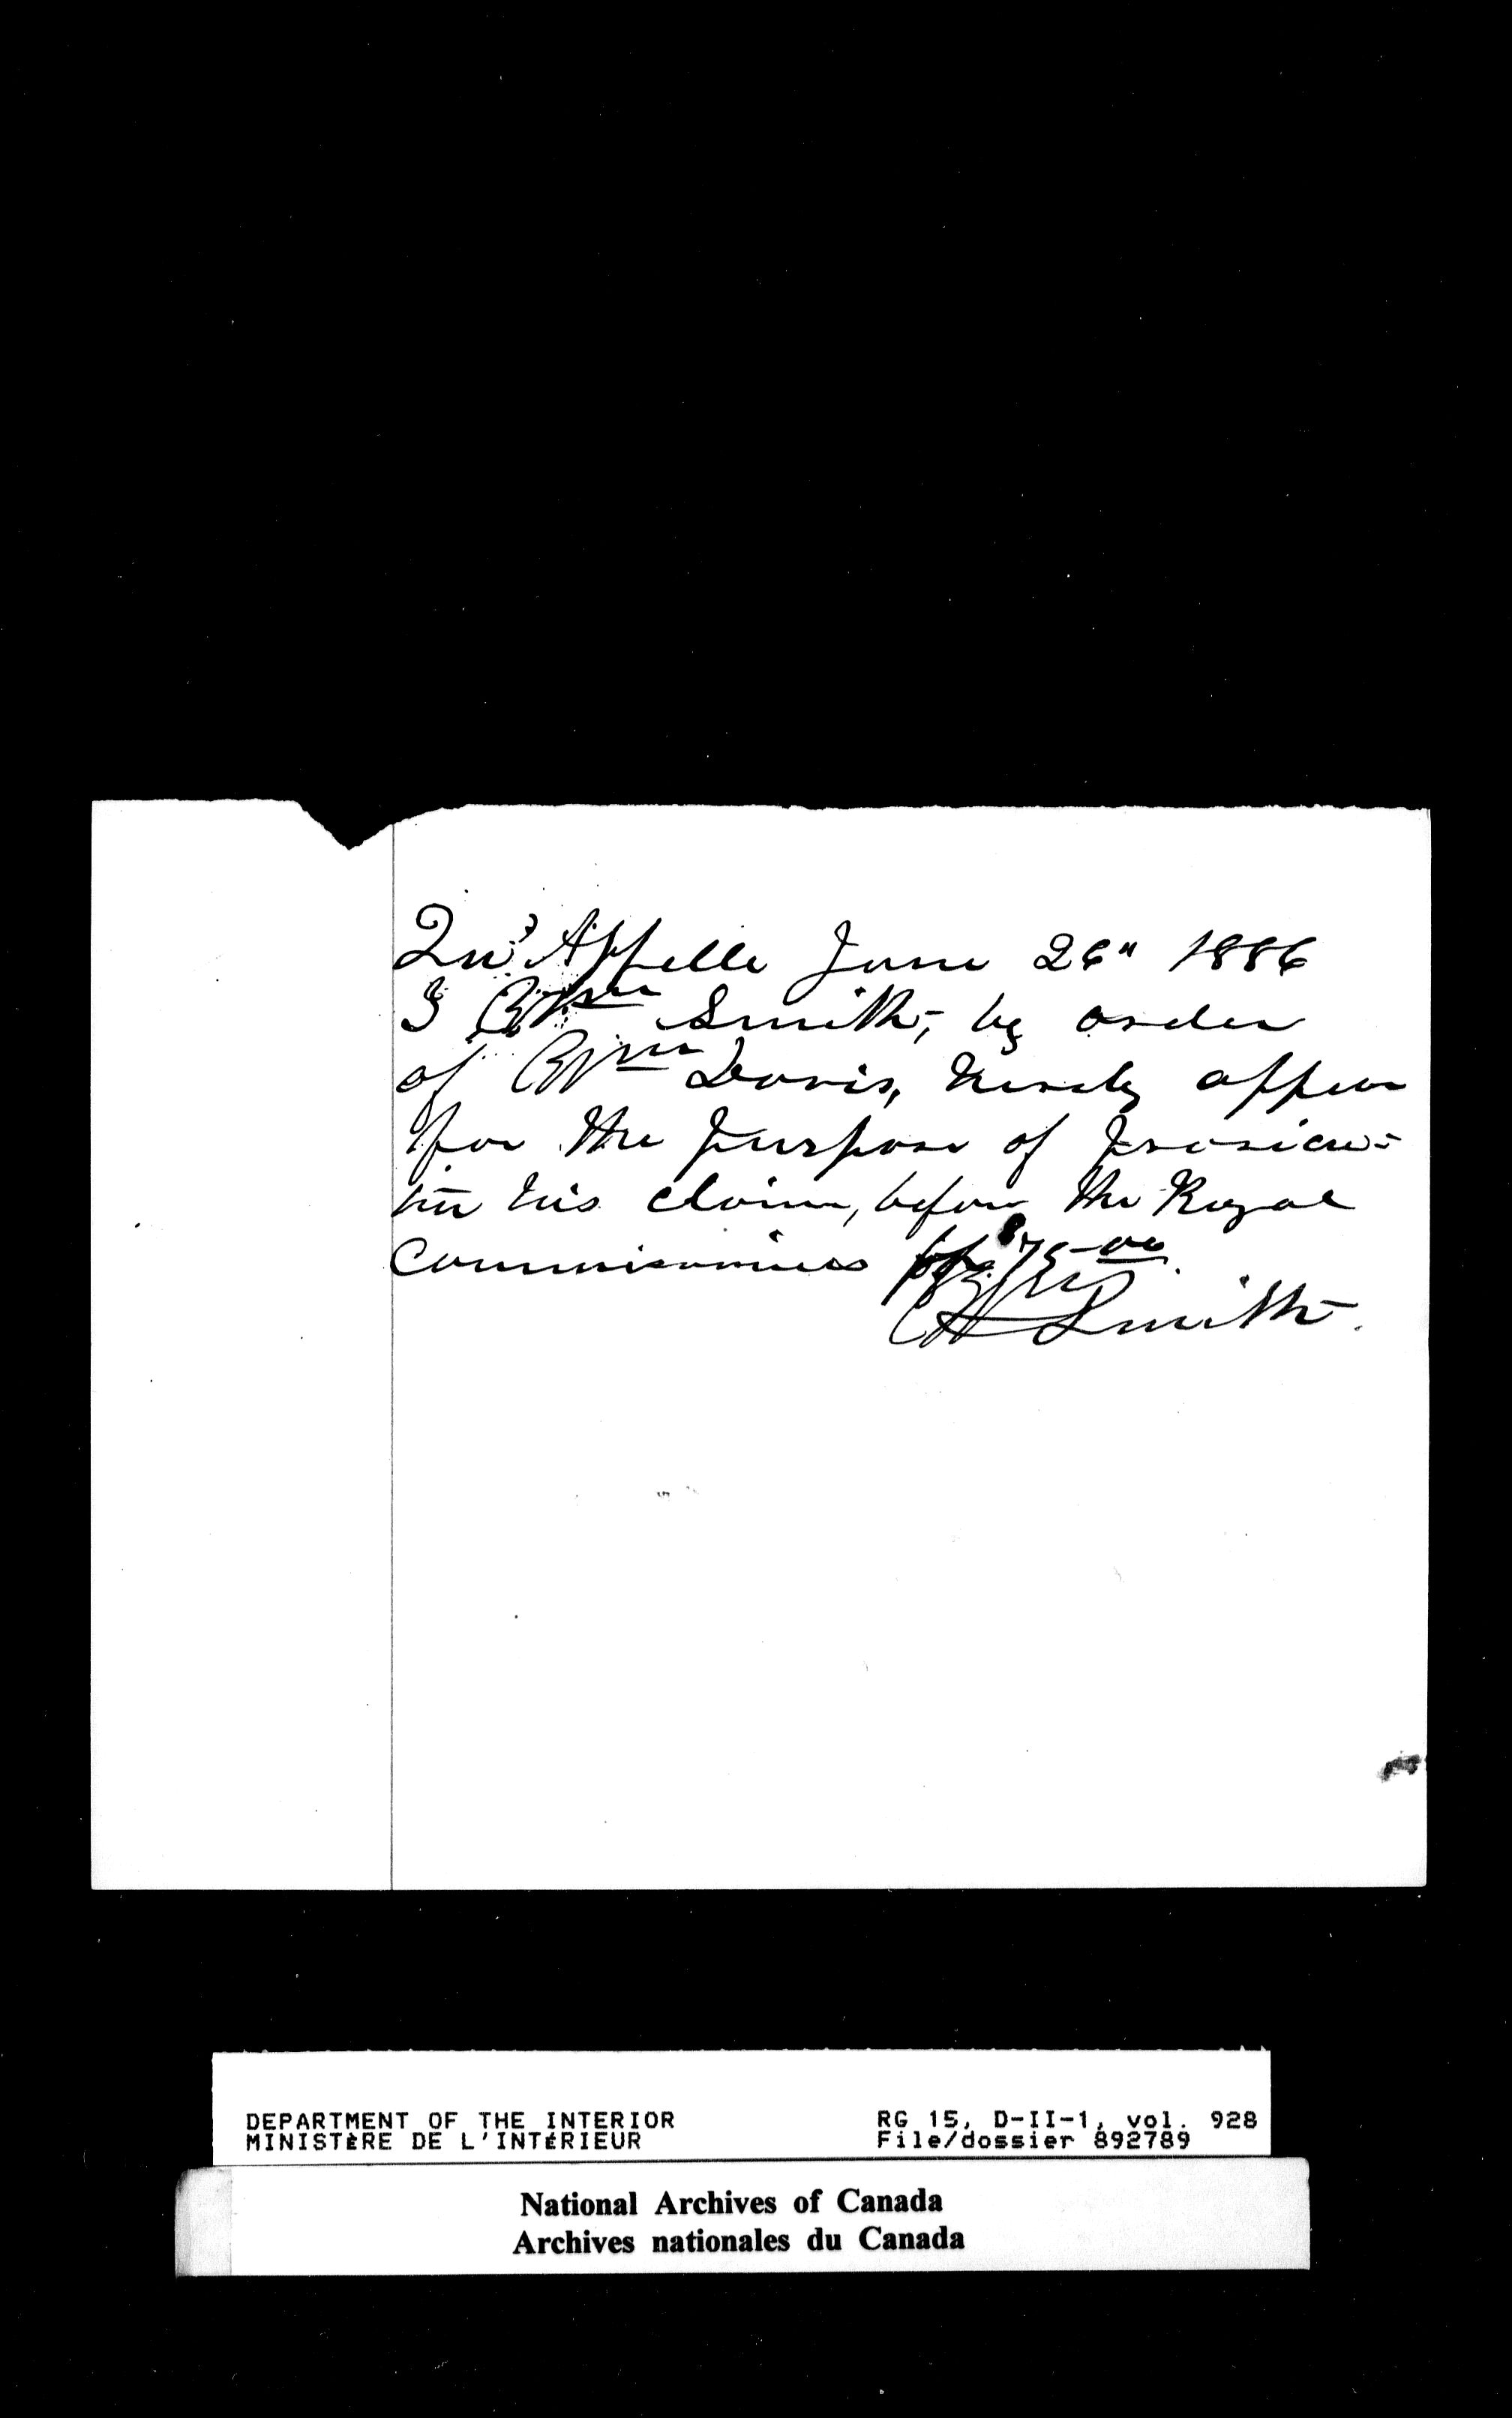 Qu'Appelle June 26" 1886
I Wm Smith, by order
of Wm Davis, hereby appear
for the purpose of prosecu=
tin his claim, before the Royal
Commissioniers of $75-00
Wm Smith.
DEPARTMENT OF THE INTERIOR RG 15, D-II-1, vol. 928
MINISTÈRE DE L'INTÉRIEUR File/dossier 892789
National Archives of Canada
Archives nationales du Canada